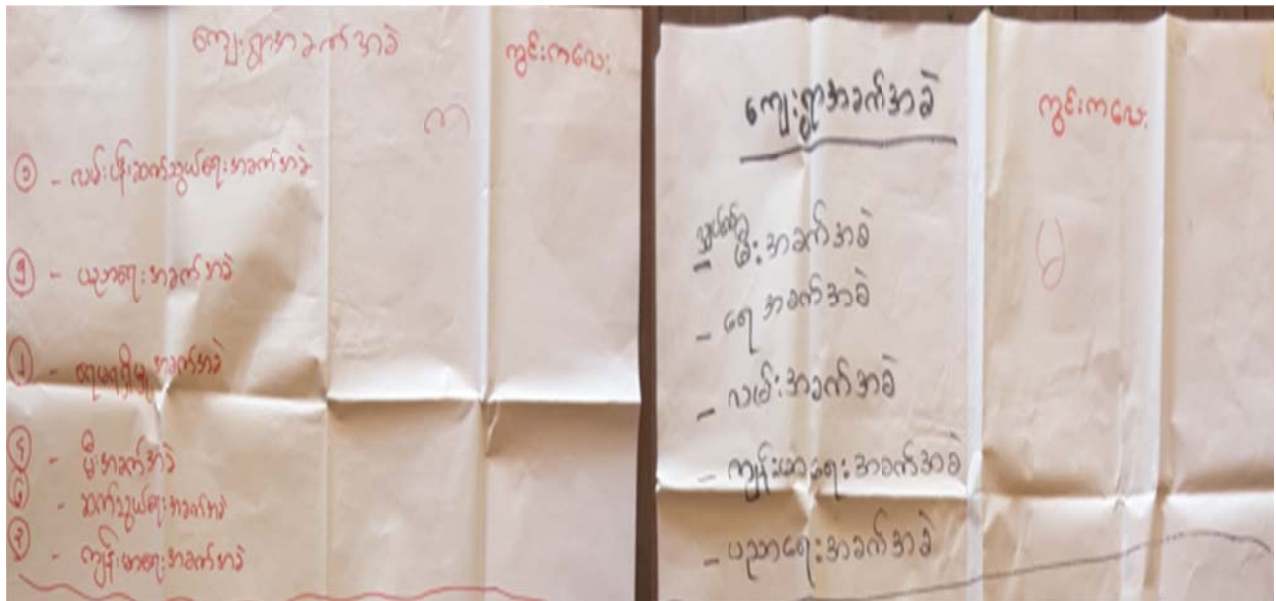 ကျေးရွာအခက်အခဲ ကွင်းကလေး
က
၁ - လမ်းပန်းဆက်သွယ်ရေးအခက်အခဲ
၅ - ပညာရေးအခက်အခဲ
၂ - ရေမရရှိမှုအခက်အခဲ
၄ - မီးအခက်အခဲ
၆ - ဆက်သွယ်ရေးအခက်အခဲ
၃ - ကျန်းမာရေးအခက်အခဲ
ကျေးရွာအခက်အခဲ ကွင်းကလေး
မ
လျှပ်စစ်
- မီးအခက်အခဲ
- ရေအခက်အခဲ
- လမ်းအခက်အခဲ
- ကျန်းမာရေးအခက်အခဲ
- ပညာရေးအခက်အခဲ